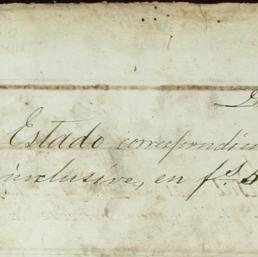 Estado correspondien
inclusive, en f.s 5